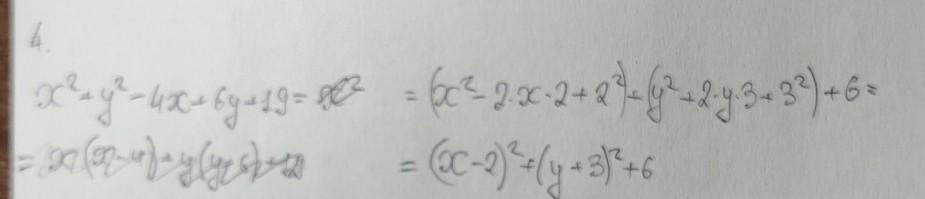 4.
x²+y²-4x+6y+19= = (x²-2·x·2+2²)+(y²+2·y·3+3²)+6=
= = (x-2)²+(y+3)²+6